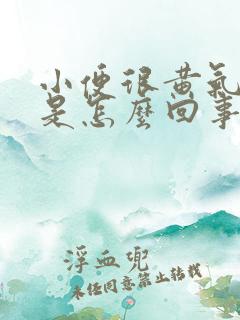 小便很黄气
是怎麼回事
浮血兜
未经同意禁止转载